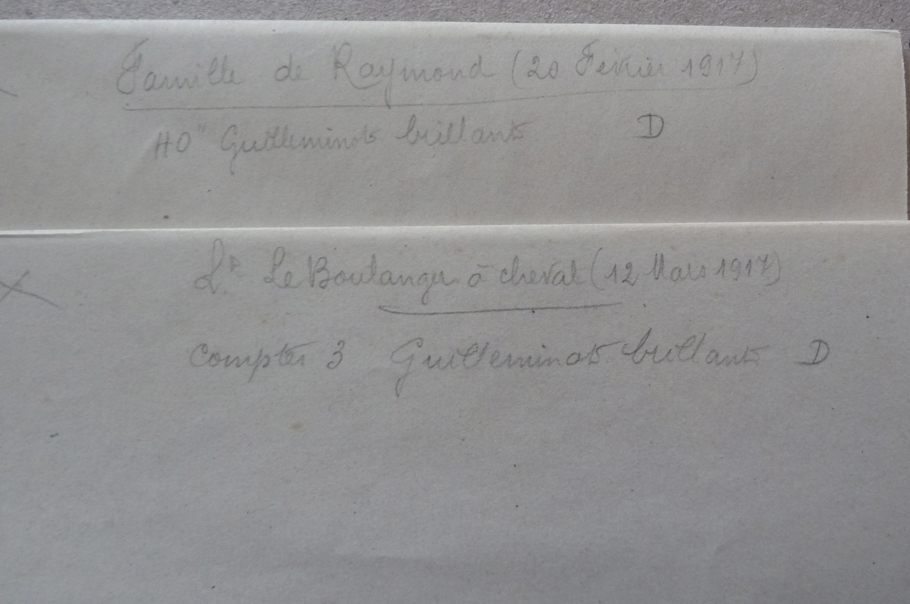 Famille de Raymond (20 Février 1917)
Guilleminots brillants D
Lt LeBoulanger à cheval (12 Mars 1917)
Compter 3 Guilleminots brillants D